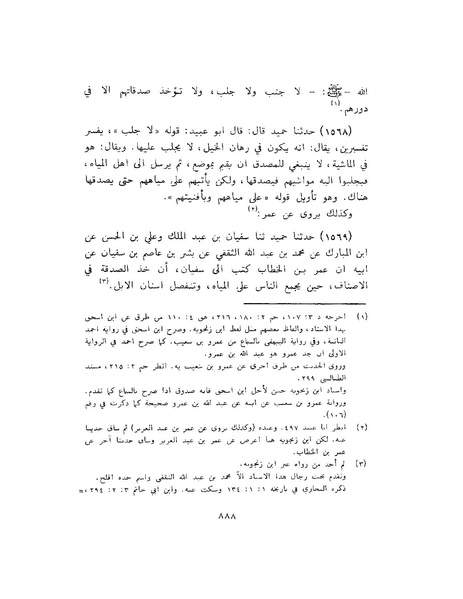 الله -ﷺ: - لا جنب ولا جلب، ولا تؤخذ صدقاتهم الا في
دورهم.(١)
(١٥٦٨) حدثنا حميد قال: قال ابو عبيد: قوله «لا جلب»، يفسر
تفسيرين، يقال: انه يكون في رهان الخيل، لا يجلب عليها. ويقال: هو
في الماشية، لا ينبغي للمصدق ان يقيم بموضع، ثم يرسل الى اهل المياه،
فيجلبوا اليه مواشيهم فيصدقها، ولكن يأتيهم على مياههم حتى يصدقها
هناك. وهو تأويل قوله «على مياههم وبأفنيتهم».
وكذلك يروى عن عمر.(٢)
(١٥٦٩) حدثنا حميد ثنا سفيان بن عبد الملك وعلي بن الحسن عن
ابن المبارك عن محمد بن عبد الله الثقفي عن بشر بن عاصم بن سفيان عن
ابيه ان عمر بن الخطاب كتب الى سفيان، أن خذ الصدقة في
الاصناف، حين يجمع الناس على المياه، وتنفصل اسنان الابل.(٣)
(١) اخرجه د ٣: ١٠٧، حم ٢: ١٨٠، ٢١٦، هق ٤: ١١٠ من طرق عن ابن اسحق
بهذا الاسناد، والفاظ بعضهم مثل لفظ ابن زنجويه. وصرح ابن اسحق في رواية احمد
الثانية، وفي رواية البيهقي بالسماع من عمرو بن شعيب. كما صرح احمد في الرواية
الاولى ان جد عمرو هو عبد الله بن عمرو.
وروى الحديث من طرق اخرى عن عمرو بن شعيب به. انظر حم ٢: ٢١٥، مسند
الطيالسي ٢٩٩.
واسناد ابن زنجويه حسن لأجل ابن اسحق فانه صدوق اذا صرح بالسماع كما تقدم.
ورواية عمرو بن شعيب عن ابيه عن عبد الله بن عمرو صحيحة كما ذكرت في رقم
(١٠٦).
(٢) انظر ابا عبيد ٤٩٧. وعنده (وكذلك يروى عن عمر بن عبد العزيز) ثم ساق حديثا
عنه. لكن ابن زنجويه هنا اعرض عن عمر بن عبد العزيز وساق حديثا آخر عن
عمر بن الخطاب.
(٣) لم أجد من رواه غير ابن زنجويه.
وتقدم بحث رجال هذا الاسناد الاّ محمد بن عبد الله الثقفي واسم جده افلح.
ذكره البخاري في تاريخه ١: ١: ١٣٤ وسكت عنه. وابن ابي حاتم ٣: ٢: ٢٩٤،=
٨٨٨